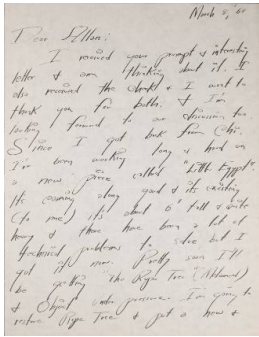 March 8, 60
Dear
I received your prompt & interesting
letter & am thinking about it. I
also received the check & I want to
thank you for both. & I'm
looking forward to our discussion too
Since I got back from Chi.
I've been working long & hard on
a new piece called "Little Egypt".
Its coming along good & its exciting
(to me) its about 6" tall &
heavy & there have been a lot of
technical problems to solve but I
got it now. Pretty soon I'll
be getting "The Rope Tree"
& Object under pressure. I'm going to
restore Rope Tree & put a new &